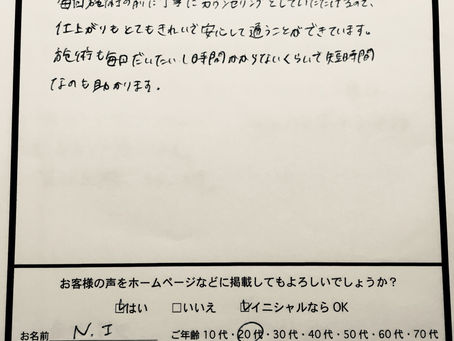 毎回施術の前に丁寧にカウンセリングをしていただけるので、
仕上がりもとてもきれいで安心して通うことができています。
施術も毎回だいたい1時間かからないくらいで短時間
なのも助かります。
お客様の声をホームページなどに掲載してもよろしいでしょうか?
☑はい □いいえ ☑イニシャルなら OK
お名前 N. I ご年齢 10代・20代・30代・40代・50代・60代・70代